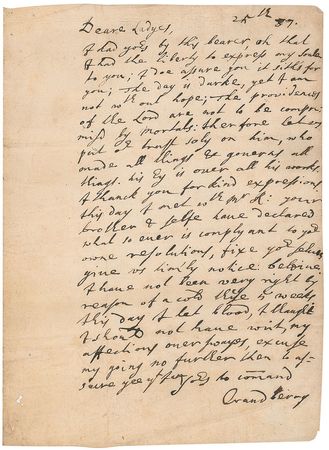 25th 87.
Deare Ladyes,
I had yors by this bearer, oh that
I had the liberty to express my soule
to you; I doe assure you it sikhs for
you; The day is darke, yet I am
not wth out hope; The providences
of the Lord are not to be compri=
misd by mortals. therefore let us
put or trust soly on him, who
made all things & governs all
things. his Ey is over all his works.
I thanck you for kind expressions
this day I met wth Mr H: your
brother & selfe have declared
what so ever is complyant to yor
owne resolutions, fixe yor selves
give us timly notice:
I have not been very right by
reason of a cold these 5 weeks
this day I let blood, I thought
I should not have writ, my
affections over swayes, excuse
my going no further then to as=
sure yee yt I am yors to comand